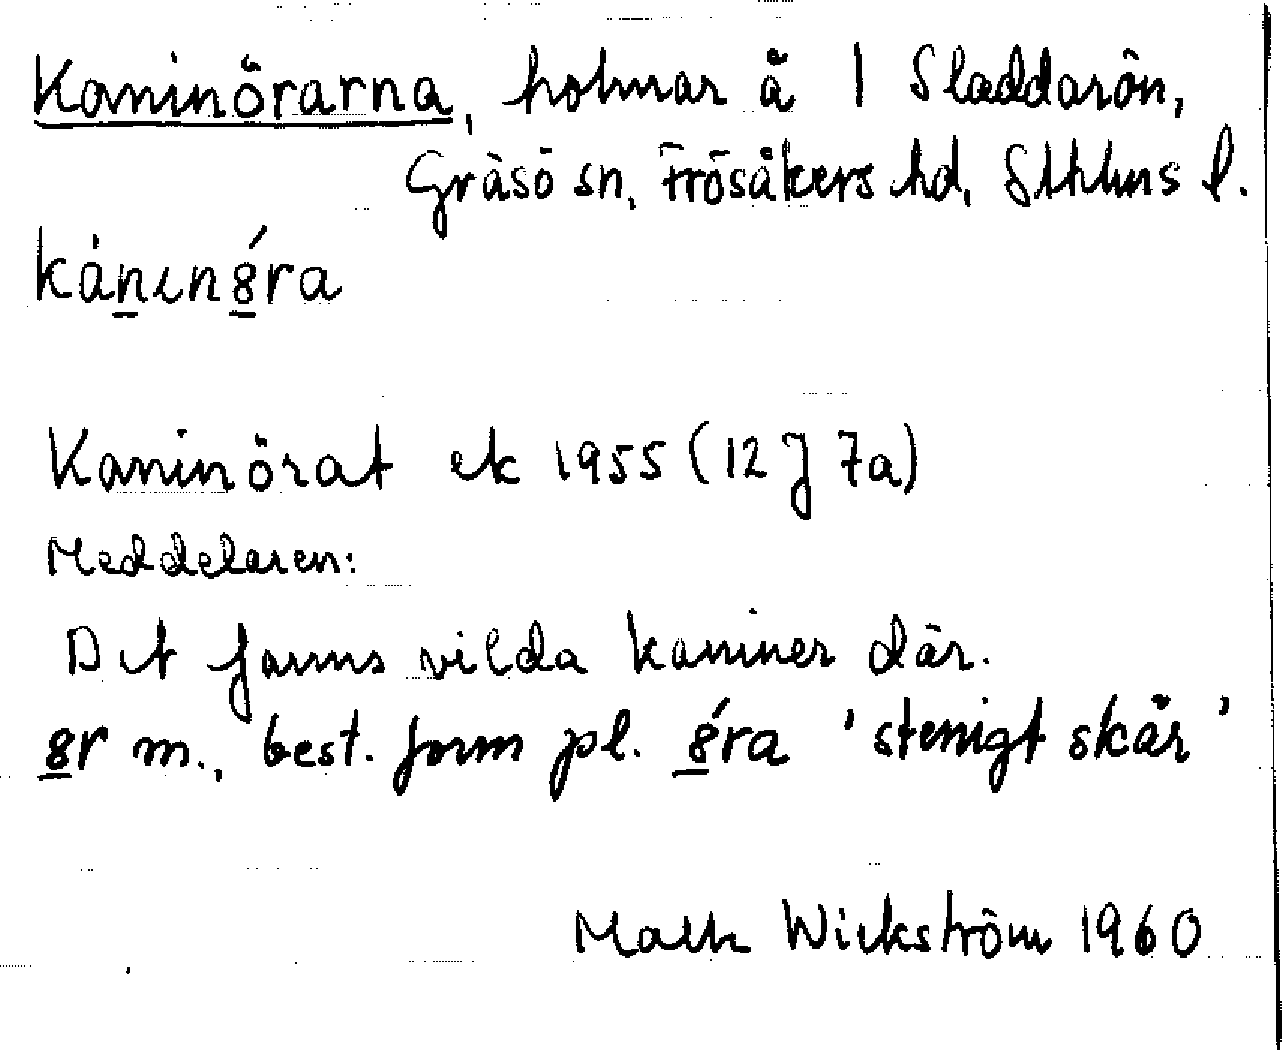 Kaninörarna, holmar å l Sladdarön,
Gräsö sn, Frösåkers hd, Sthlms l.
kȧnιnǵra
Kaninörat ek 1955 (12 J 7a)
Meddelaren:
Det fanns vilda kaniner där.
8r m., best. form pl. 8́ra 'stenigt skär'
Wickström 1960